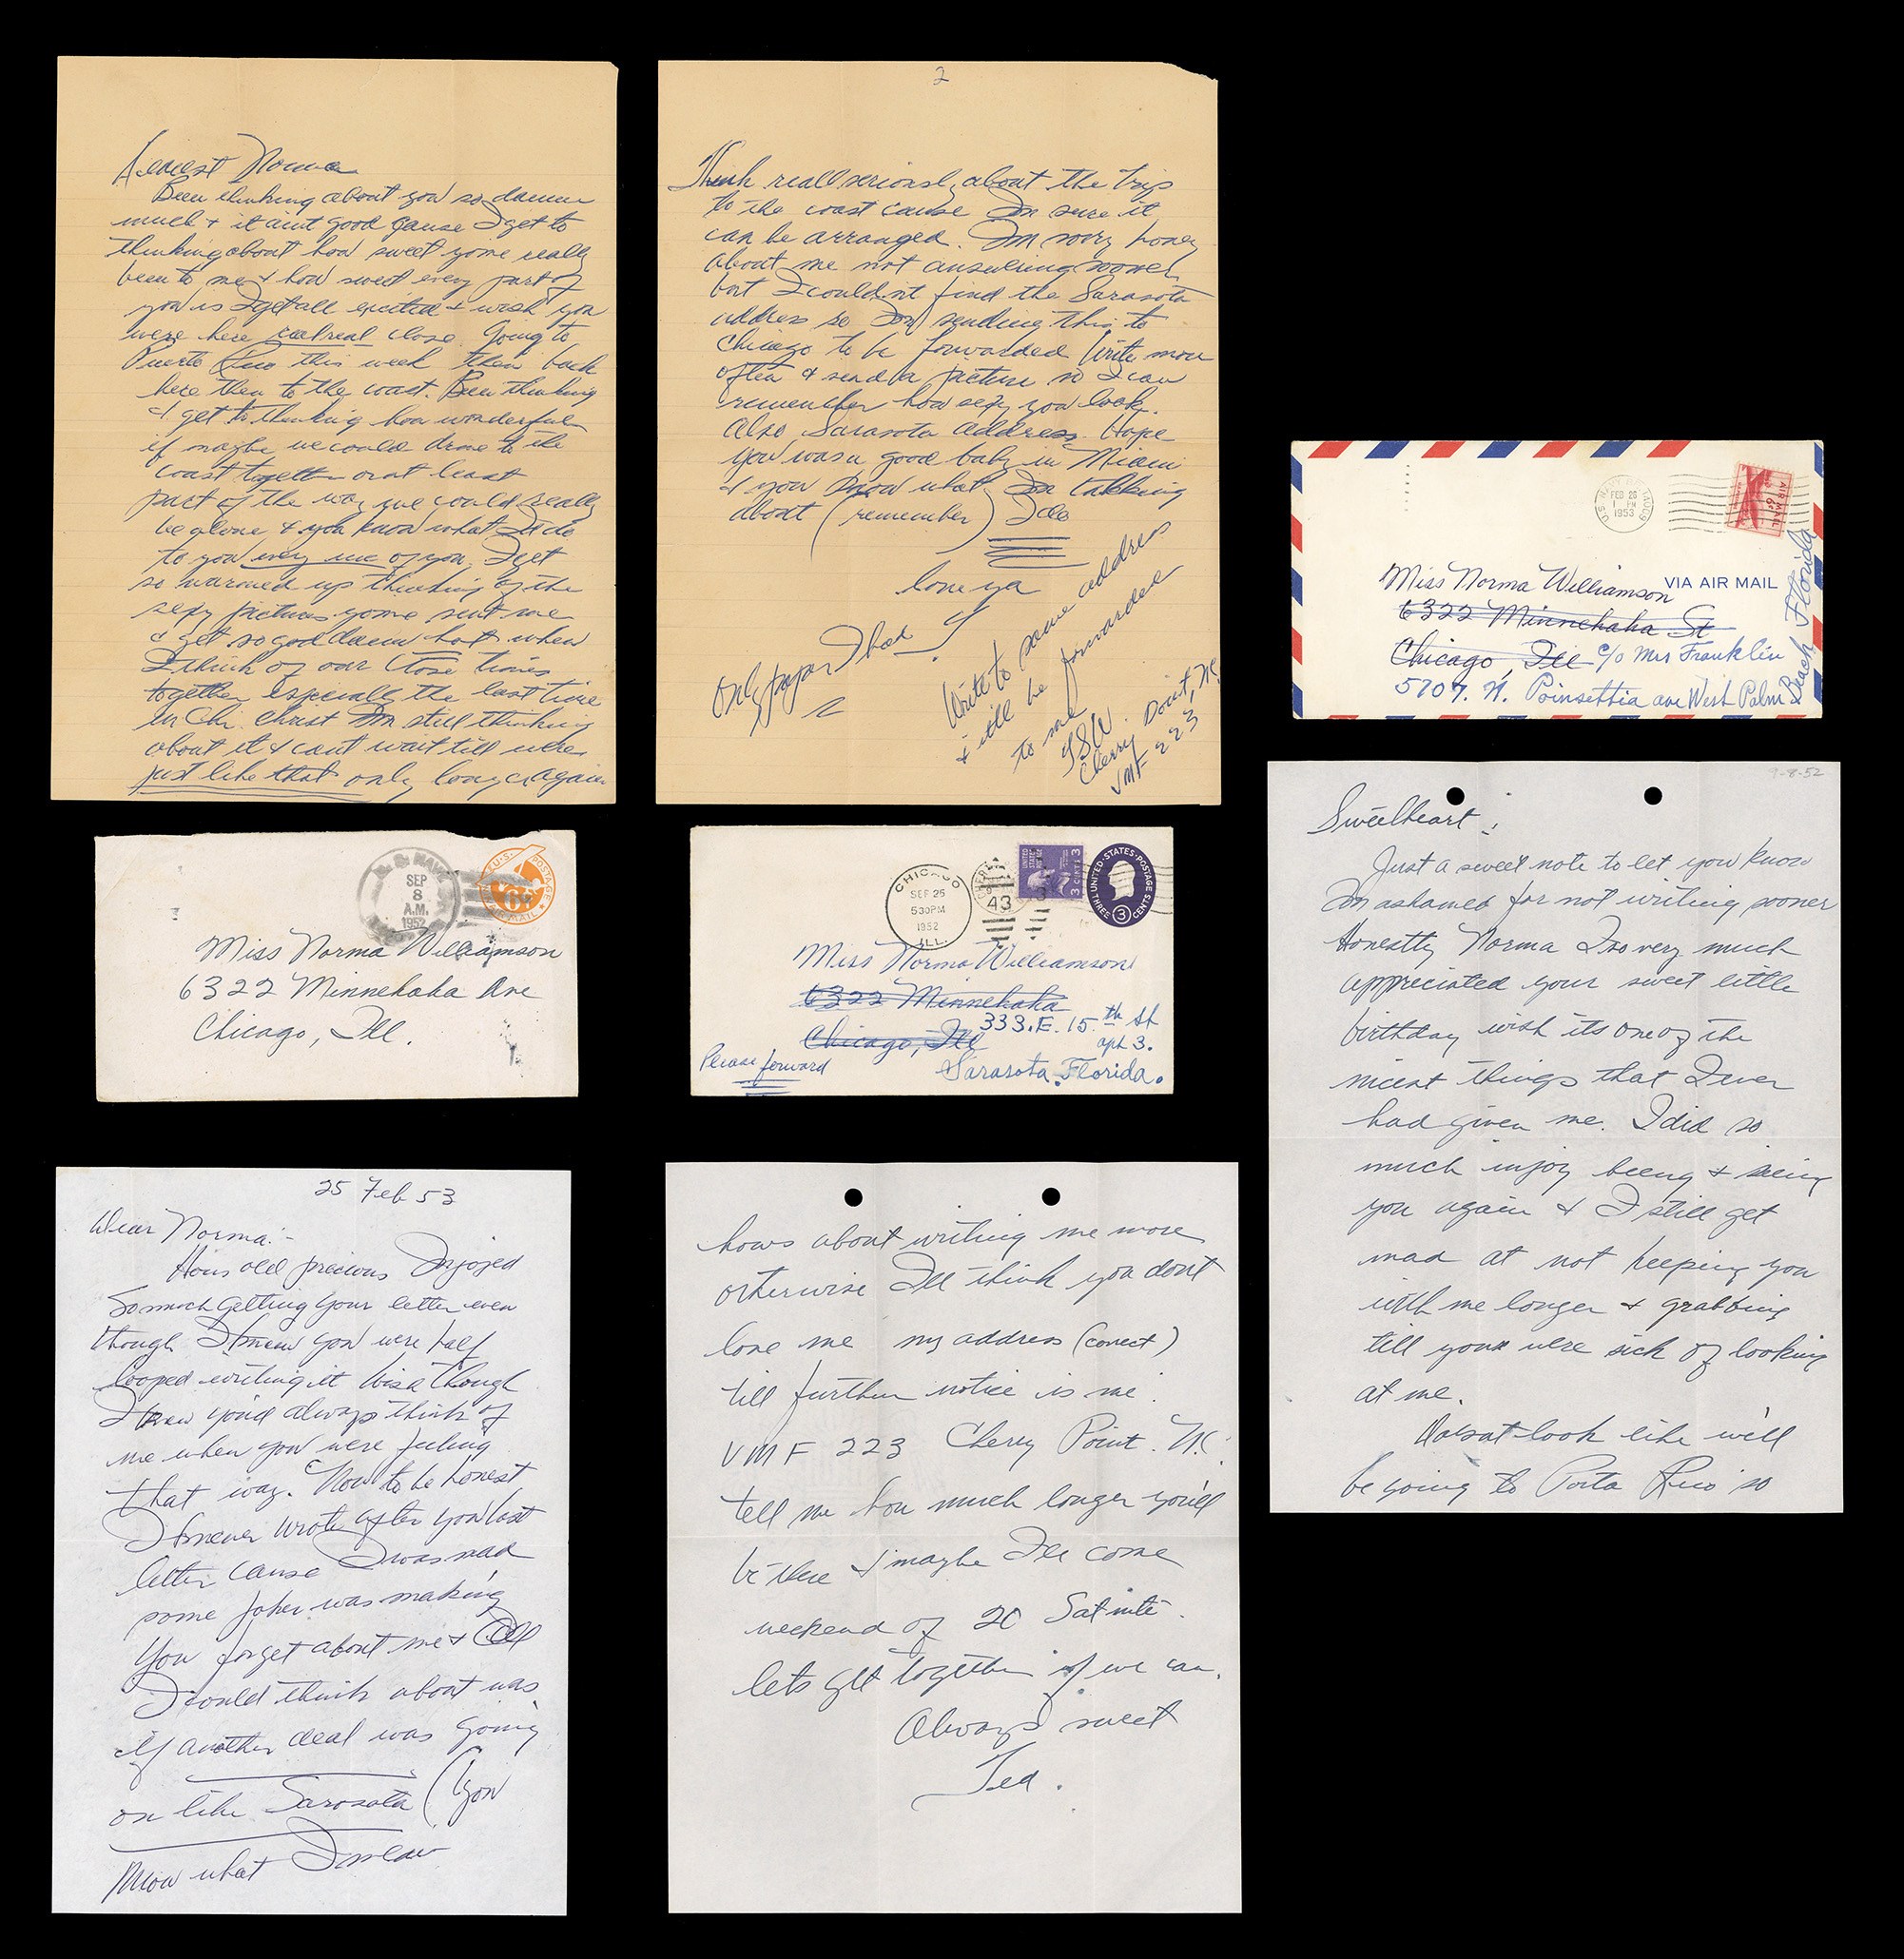 Dearest Norma
Been thinking about you so damn
much + it aint good cause I get to
thinking about how sweet you've really
been to me + how sweet every part of
you is I get all excited + wish you
were here real real close. Going to
Puerto Rico this week then back
here then to the coast. Been thinking
I get to thinking how wonderful
if maybe we could drive to the
coast together or at least
part of the way we could really
be alone + you know what I'd do
to you every inch of you. I get
so warmed up thinking of the
sexy pictures you've sent me
I get so goddamn hot when
I think of our close times
together especially the last time
in Chi. Christ Im still thinking
about it + cant wait till were
just like that only longer again
2
Think real seriously about the trip
to the coast cause Im sure it
can be arranged. Im sorry honey
about me not answering sooner
but I couldn't find the Sarasota
address so Im sending this to
Chicago to be forwarded Write more
often + send a picture so I can
remember how sexy you look.
Also Sarasota address. Hope
you was a good baby in Miami
+ you know what Im talking
about (remember) I do
love ya
T
Only paper I had
Write to same address
+ it'll be forwarded
to me
TSW
Cherry Point, NC
VMF 223
U.S. NAVY
FEB 26
1 PM
1953
AIR MAIL
6¢
VIA AIR MAIL
Miss Norma Williamson
6322 Minnehaha St
Chicago, Ill c/o Mrs Franklin
5707. N. Poinsettia ave West Palm
Beach Florida
U.S. NAVY
SEP
8
A.M.
1952
U.S. POSTAGE
6¢
AIR MAIL
Miss Norma Williamson
6322 Minnehaha Ave
Chicago, Ill.
CHICAGO
SEP 25
530PM
1952
ILL.
43
UNITED STATES POSTAGE
3 CENTS 3
UNITED STATES POSTAGE
THREE 3 CENTS
Miss Norma Williamson
6322 Minnehaha
Chicago, Ill 333. E. 15th St
apt 3.
Please forward
Sarasota. Florida.
9-8-52
Sweetheart:
Just a sweet note to let you know
Im ashamed for not writing sooner
Honestly Norma I so very much
appreciated your sweet little
birthday wish its one of the
nicest things that I ever
had given me. I did so
much injoy being + seeing
you again + I still get
mad at not keeping you
with me longer + grabbing
till you were sick of looking
at me.
look like we'll
be going to Porta Rico so
25 Feb 53
Dear Norma:-
Hows old precious Injoyed
So much getting your letter even
though I knew you were half
looped writing it
I knew you'd always think of
me when you were feeling
that way. Now to be honest
I never wrote after your last
letter cause I was mad
some joker was making
you forget about me + all
I could think about was
if another deal was going
on like Sarasota (you
know what I mean
hows about writing me more
ortherwise Ill think you don't
love me my address (correct)
till further notice is me
VMF 223 Cherry Point. N.C.
tell me how much longer you'll
be there + maybe Ill come
weekend of 20 Sat nite.
lets get together if we can.
Always sweet
Ted.